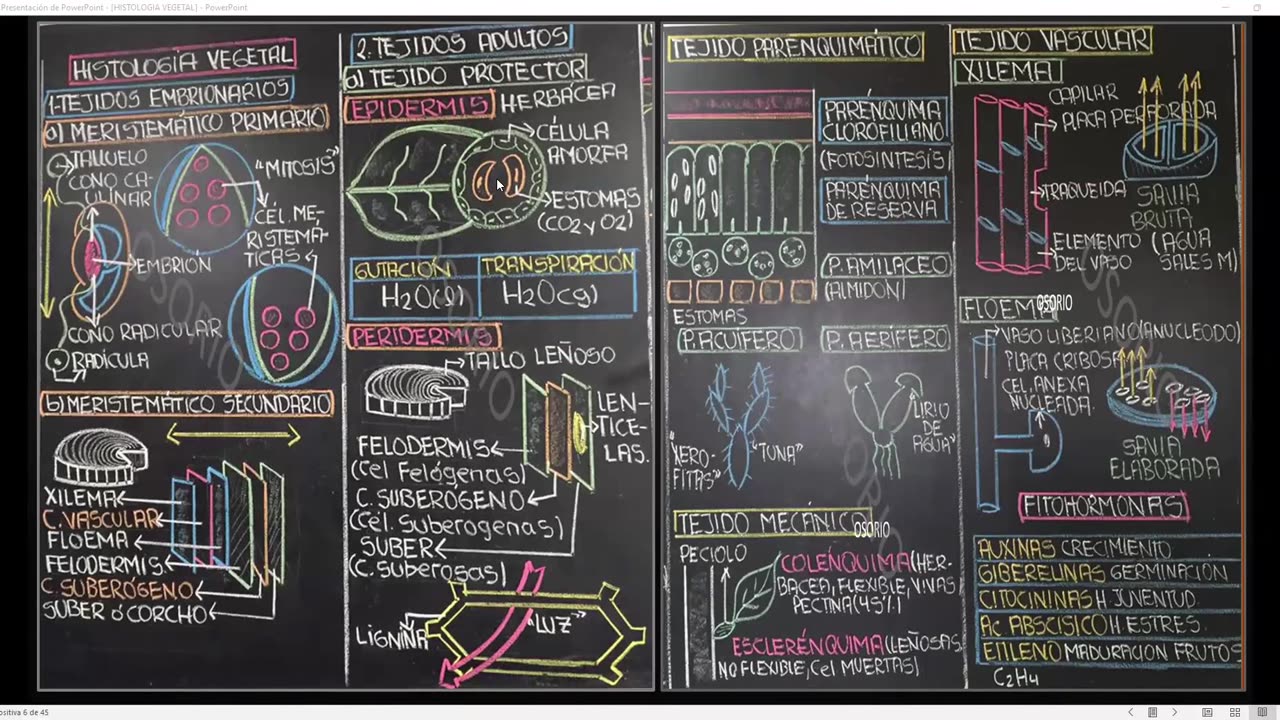 Presentación de PowerPoint - [HISTOLOGIA VEGETAL] - PowerPoint
HISTOLOGÍA VEGETAL
1.TEJIDOS EMBRIONARIOS
a) MERISTEMÁTICO PRIMARIO
TALLUELO
CONO CA-
ULINAR
"MITOSIS"
CÉL. ME-
RISTEMÁ-
TICAS
EMBRIÓN
CONO RADICULAR
RADÍCULA
b) MERISTEMÁTICO SECUNDARIO
XILEMA
C. VASCULAR
FLOEMA
FELODERMIS
C. SUBERÓGENO
SUBER Ó CORCHO
2. TEJIDOS ADULTOS
a) TEJIDO PROTECTOR
EPIDERMIS HERBÁCEA
CÉLULA
AMORFA
ESTOMAS
(CO2 y O2)
GUTACIÓN TRANSPIRACIÓN
H2O(l) H2O(g)
PERIDERMIS
TALLO LEÑOSO
LEN-
TICE-
LAS.
FELODERMIS
(Cel Felógenas)
C. SUBERÓGENO
(Cél. Suberogenas)
SUBER
(C. Suberosas)
LIGNINA
"LUZ"
TEJIDO PARENQUIMÁTICO
PARÉNQUIMA
CLOROFILIANO
(FOTOSINTESIS)
PARÉNQUIMA
DE RESERVA
(P. AMILACEO)
(ALMIDON)
ESTOMAS
(P. ACUÍFERO)
P. AERÍFERO
"XERO-
FITAS"
"TUNA"
"LIRIO
DE
AGUA"
TEJIDO MECÁNICO
OSORIO
PECIOLO
COLÉNQUIMA (HER-
BACEA, FLEXIBLE, VIVAS
PECTINA (45%)
ESCLERÉNQUIMA (LEÑOSAS
NO FLEXIBLE, Cel MUERTAS)
TEJIDO VASCULAR
XILEMA
CAPILAR
PLACA PERFORADA
TRAQUEIDA
ELEMENTO
DEL VASO
SAVIA
BRUTA
(AGUA
SALES M)
FLOEMA
OSORIO
VASO LIBERIANO (ANUCLEODO)
PLACA CRIBOSA
CEL. ANEXA
NUCLEADA.
SAVIA
ELABORADA
FITOHORMONAS
AUXINAS CRECIMIENTO
GIBERELINAS GERMINACIÓN
CITOCININAS H JUVENTUD
Ac ABSCISICO H. ESTRES.
ETILENO MADURACION FRUTOS
C2H4
OSORIO
OSORIO
OSORIO
OSORIO
ositiva 6 de 45